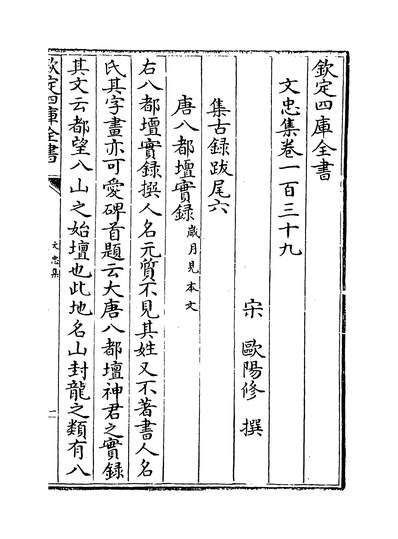 欽定四庫全書
文忠集卷一百三十九
宋 歐陽修 撰
集古録跋尾六
唐八都壇實録歲月見本文
右八都壇實録撰人名元質不見其姓又不著書人名
氏其字畫亦可愛碑首題云大唐八都壇神君之實録
其文云都望八山之始壇也此地名山封龍之類有八
欽定四庫全書
文忠集
一